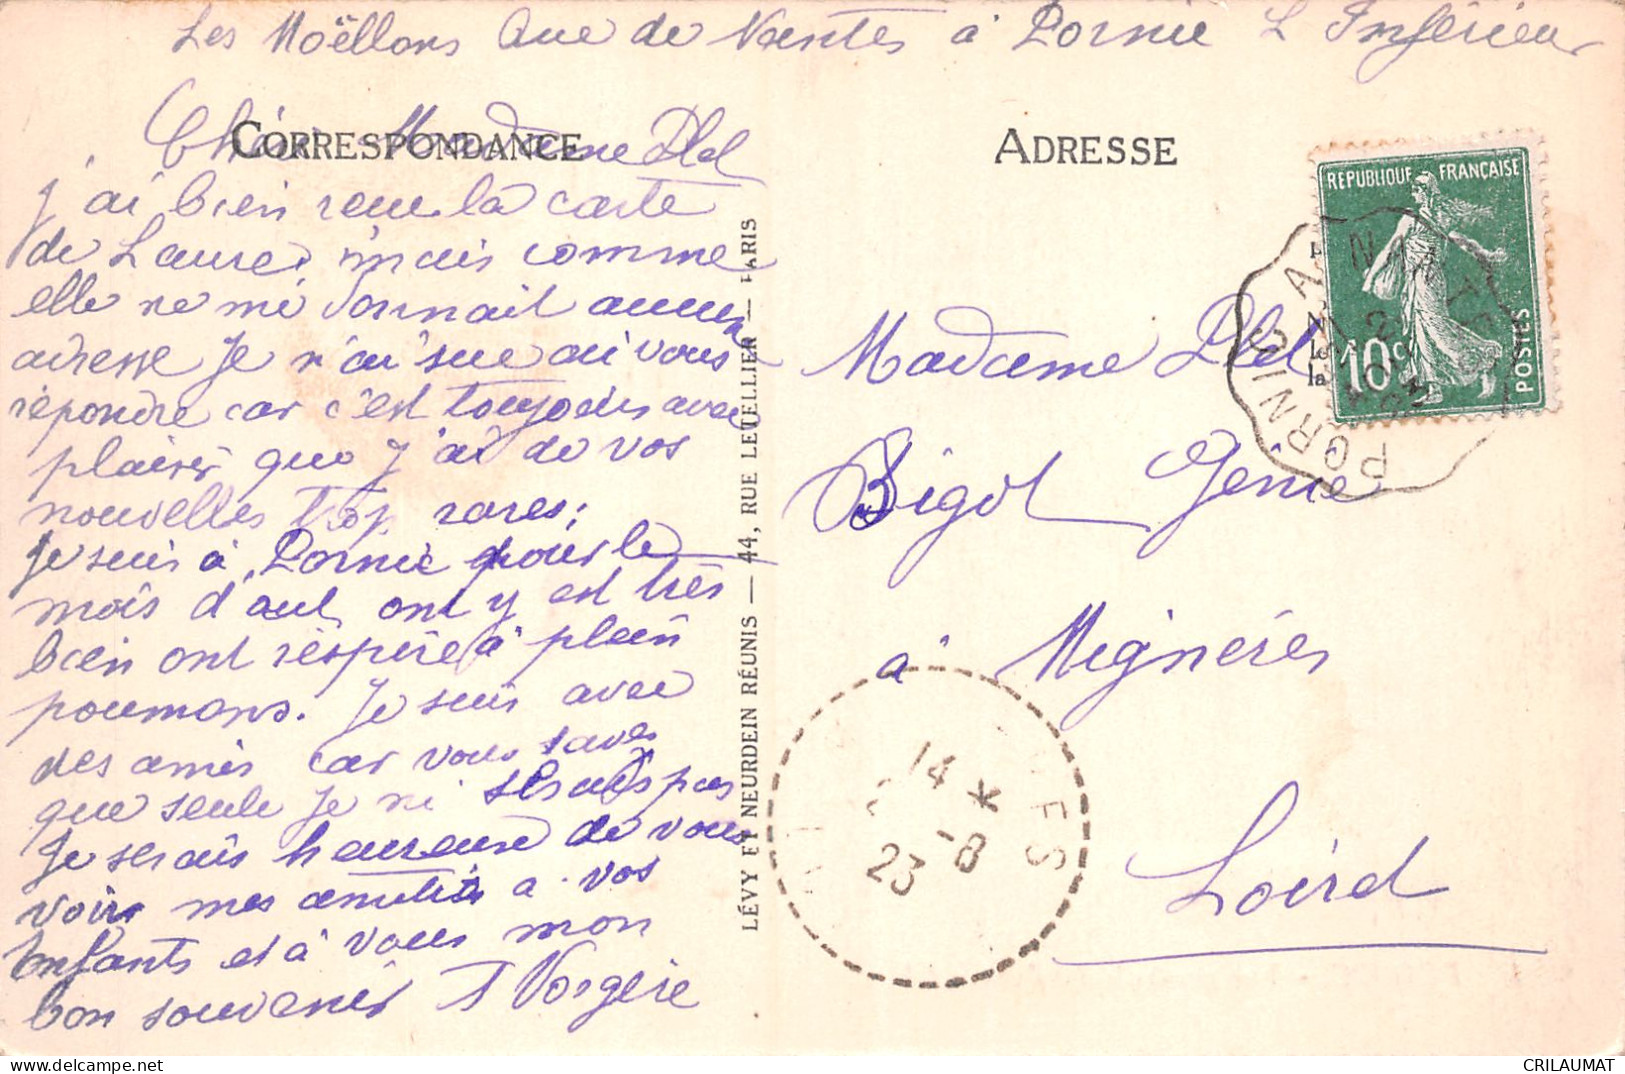 Les Moëllons Ave de Nantes à Pornic L Inférieur
CORRESPONDANCE
Chère Madame Plel
j'ai bien reçu la carte
de Laure, mais comme
elle ne me donnait aucune
adresse Je n'ai sue ai vous
répondre car c'est toujours avec
plaisir que J'ai de vos
nouvelles trop rares;
Je suis à Pornic pour le
mois d'aut ont y est très
bien ont respire à plein
poumons. Je suis avec
des amis car vous savez
que seule Je ni serais pas
Je serais heureuse de vous
voir mes amitiés a vos
Enfants et à vous mon
bon souvenir Vorgère
LÉVY ET NEURDEIN RÉUNIS — 44, RUE LETELLIER — PARIS
ADRESSE
REPUBLIQUE FRANÇAISE
10c
POSTES
PORNIC A NANTES
Madame Plel
Bigot Génie
à Mignères
Loiret
14 *
-8
23
ES
CRILAUMAT